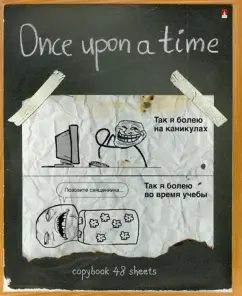 Once upon a time
Так я болею
на каникулах
Позовите священника...
Так я болею
во время учебы
copybook 48 sheets